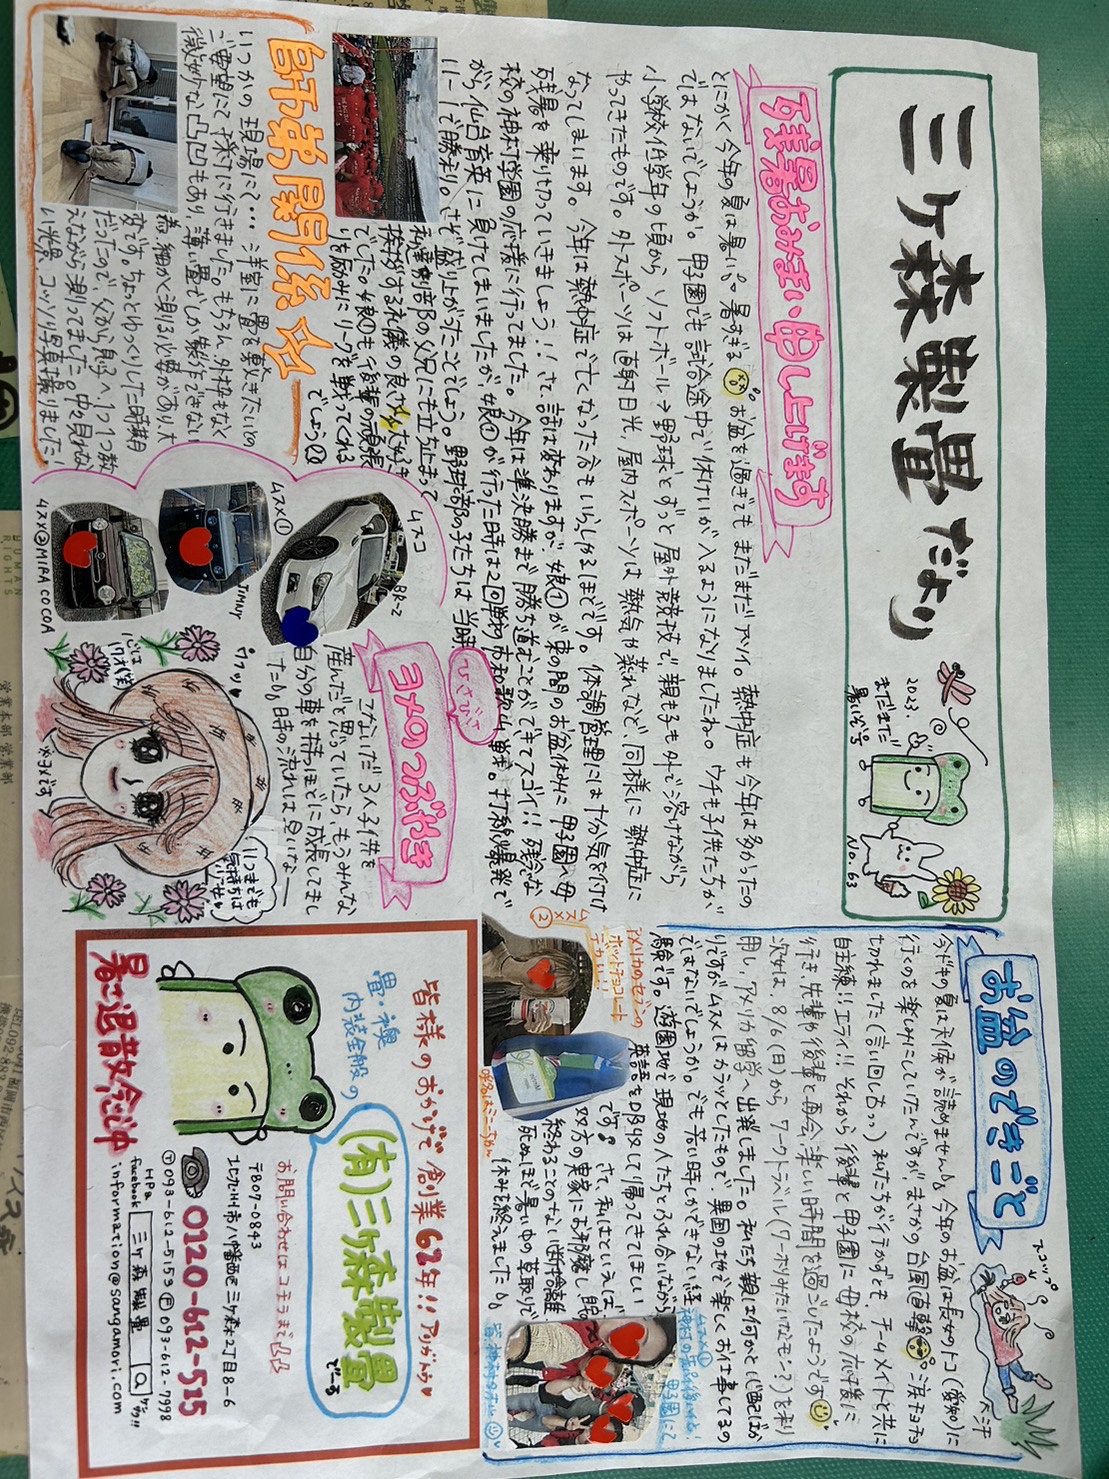 三ケ森製畳だより
2023.
まだまだ
暑いぞ号
No.63
残暑お見まい申し上げます
とにかく今年の夏は暑い!!暑すぎる お盆を過ぎてもまだまだアツイ。熱中症も今年は多かったの
ではないでしょうか。甲子園でも試合途中で休けいが入るようになりましたね。ウチも子供たちが
小学校低学年の頃からソフトボール→野球とずっと屋外競技で、親も子も外で溶けながら
やってきたものです。外スポーツは直射日光、屋内スポーツは熱気が蒸れなど、同様に熱中症に
なってしまいます。今年は熱中症で亡くなった方もいらっしゃるほどです。体調管理には十分気を付け
残暑を乗り切っていきましょう!!さて、話は変わりますが、娘①が束の間のお盆休みに甲子園へ母
校の神村学園の応援に行ってました。今年は準決勝まで勝ち進むことができてスゴイ!!残念な
がら仙台育英に負けてしまいましたが、娘①が行った時は2回戦の市和歌山戦。打線爆発で
11-1で勝利。さぞ盛り上がったことでしょう。野球部の子たちは当時
私達寮別部の父兄にも立ち止まって
挨拶する礼儀の良さが大好き
でした。娘①も後輩の頑張
りを励みにリーグを戦ってくれる
でしょう
師弟関係☆
いつかの現場にて… 洋室に畳を敷きたいの
ご要望にて採寸に行きました。もちろん外枠もなく
微妙な凸凹もあり、薄い畳でしか製作できない
為、細かく測る必要があり大
変です。ちょっとゆっくりした時期
だったので、父から息子へ1つ1つ教
えながら測ってました。中々見れな
い光景、コッソリ写真撮りました。
ムスコ
BR-Z
ムスメ①
JIMNY
ムスメ②MIRA COCOA
ひさびさ
ヨメのつぶやき
こないだ3人子供を
産んだと思っていたらもうみんな
自分の車を持つほどに成長してまし
た。時の流れは早いな―
ウフッ♥
心は
17才(笑)
※ヨメです
いつまでも
気持ちは
お盆のできごと
スコップ
大汗
今どきの夏は天候が読めません。今年のお盆は長女のトコ(愛知)に
行くのを楽しみにしていたんですが、まさかの台風直撃 涙チョチョ
切れました(言い回し古っ)私たちが行かずとも、チームメイトと共に
自主練!!エライ!!それから後輩と甲子園に母校の応援に
行き先輩や後輩と再会、楽しい時間を過ごしたようです
次女は、8/6(日)からワークトラベル(ワーホリみたいなモン?)を利
用し、アメリカ留学へ出発しました。私たち親は何かと心配ばか
りですがムスメはカラッとしたもので、異国の地で楽しくお仕事してるの
ではないでしょうか。でも若い時しかできない経
験です。遊園地で現地の人たちとふれ合いながら
英語を吸収して帰ってきてほしい
です。さて、私はといえば
双方の実家にお邪魔し、
終わることのない断捨離
死ぬほど暑い中の草取りで
休みを終えました
ムスメ
②
アメリカのセブンの
ホットチョコレート
デカ―ッ!
ムスメ①
神村の先輩後輩と
甲子園にて
皆様のおかげで創業62年!!アリがとう♥
畳・襖
内装全般の
(有)三ケ森製畳
でーす
お問い合わせはコチラまで
〒807-0843
北九州市八幡西区三ケ森2丁目8-6
0120-612-515
Ⓣ093-612-5153 Ⓕ093-612-7998
HP&
facebook
三ケ森製畳
ケンサク!!
information@sangamori.com
暑さ退散念じ中
HUMAN
RIGHTS
営業本部 営業部